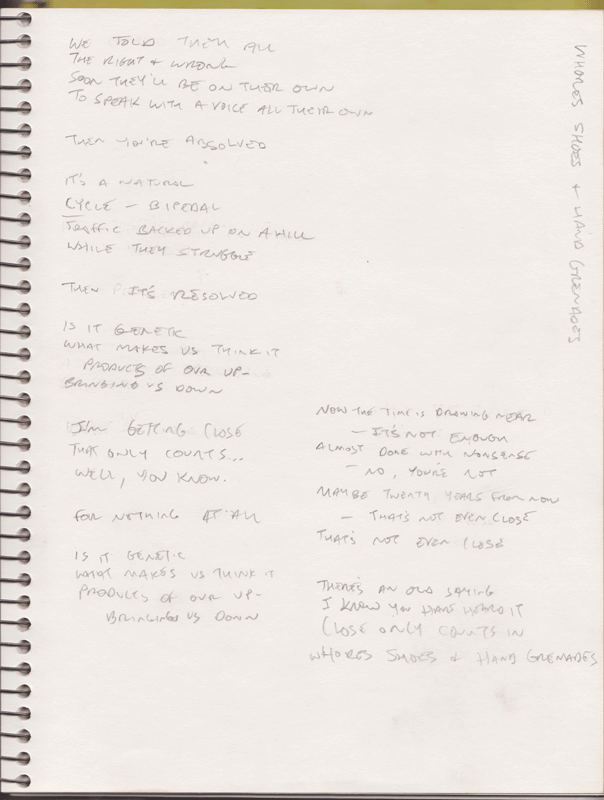 WE TOLD THEM ALL
THE RIGHT & WRONG
SOON THEY'LL BE ON THEIR OWN
TO SPEAK WITH A VOICE ALL THEIR OWN
THEN YOU'RE ABSOLVED
IT'S A NATURAL
CYCLE - BIPEDAL
TRAFFIC BACKED UP ON A HILL
WHILE THEY STRUGGLE
THEN IT'S RESOLVED
IS IT GENETIC
WHAT MAKES US THINK IT
PRODUCTS OF OUR UP-
BRINGING US DOWN
I'M GETTING CLOSE
THAT ONLY COUNTS...
WELL, YOU KNOW.
FOR NOTHING AT ALL
IS IT GENETIC
WHAT MAKES US THINK IT
PRODUCTS OF OUR UP-
BRINGING US DOWN
NOW THE TIME IS DRAWING NEAR
- IT'S NOT ENOUGH
ALMOST DONE WITH NONSENSE
- NO, YOU'RE NOT
MAYBE TWENTY YEARS FROM NOW
- THAT'S NOT EVEN CLOSE
THAT'S NOT EVEN CLOSE
THERE'S AN OLD SAYING
I KNOW YOU HAVE HEARD IT
CLOSE ONLY COUNTS IN
WHORES SHOES & HAND GRENADES
WHORES SHOES & HAND GRENADES